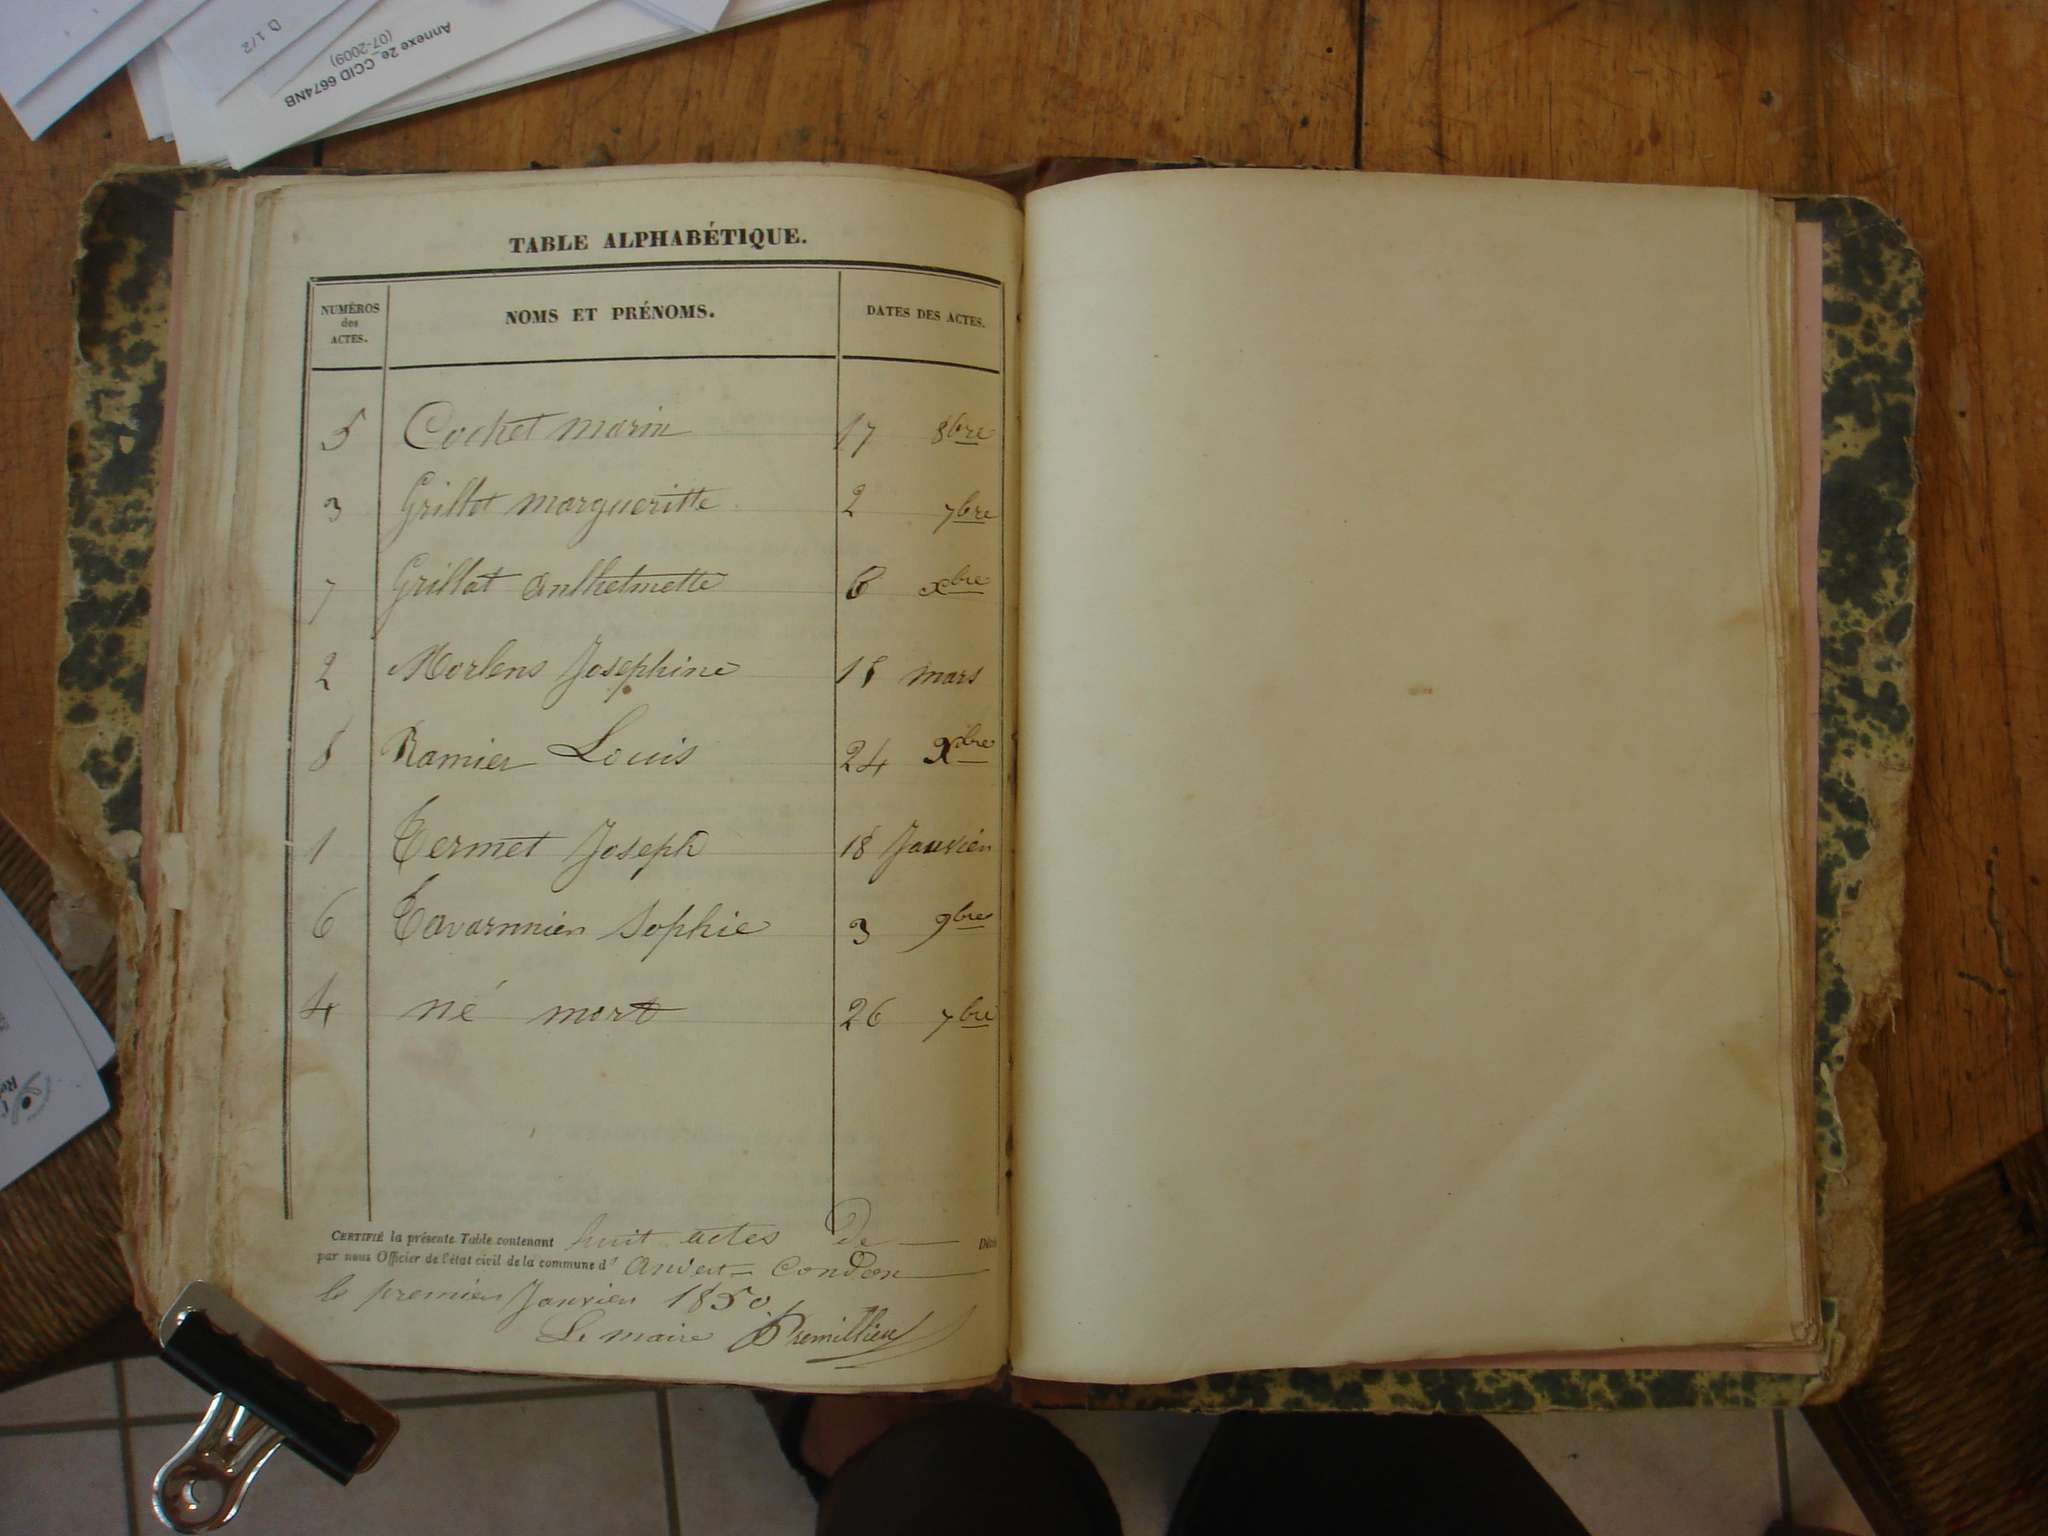 D 1/2
Annexe 2e_CCID 6674NB
(07-2009)
TABLE ALPHABÉTIQUE.
NUMÉROS des ACTES. NOMS ET PRÉNOMS. DATES DES ACTES.
5 Cochet marin 17 8bre
3 Grillot margueritte 2 7bre
7 Grillat anthelmette 6 xbre
2 Morlens Josephine 18 mars
8 Ramier Louis 24 Xbre
1 Termet Joseph 18 Janvier
6 Tavarnnier Sophie 3 9bre
4 né mort 26 7bre
CERTIFIÉ la présente Table contenant huit actes de Décès
par nous Officier de l'état civil de la commune d' anvert= Condon
le premier Janvier 1850
Le maire Premillieu